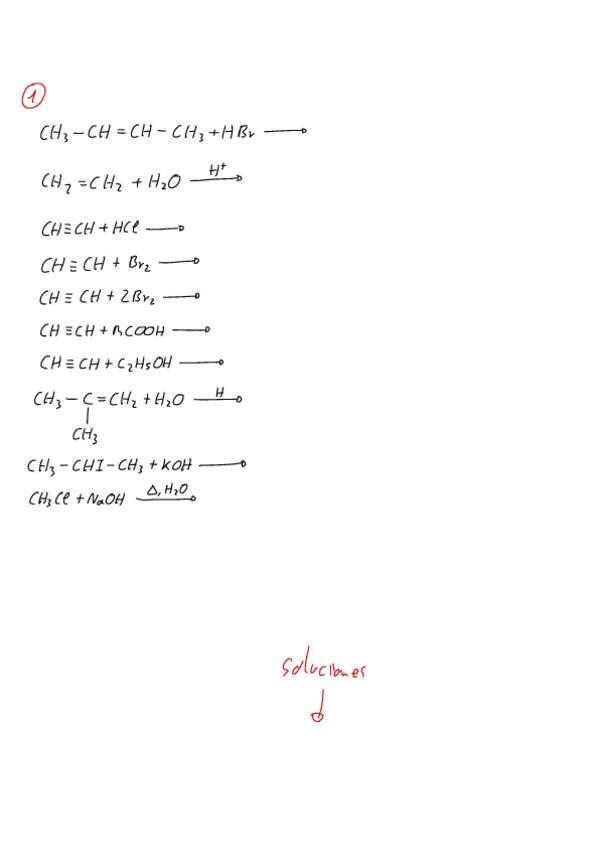 1
CH₃-CH=CH-CH₃+HBr ⟶
CH₂=CH₂+H₂O ⟶ H⁺
CH≡CH+HCl ⟶
CH≡CH+Br₂ ⟶
CH≡CH+2Br₂ ⟶
CH≡CH+RCOOH ⟶
CH≡CH+C₂H₅OH ⟶
CH₃-C=CH₂+H₂O ⟶ H
CH₃
CH₃-CHI-CH₃+KOH ⟶
CH₃Cl+NaOH ⟶ Δ, H₂O
Soluciones